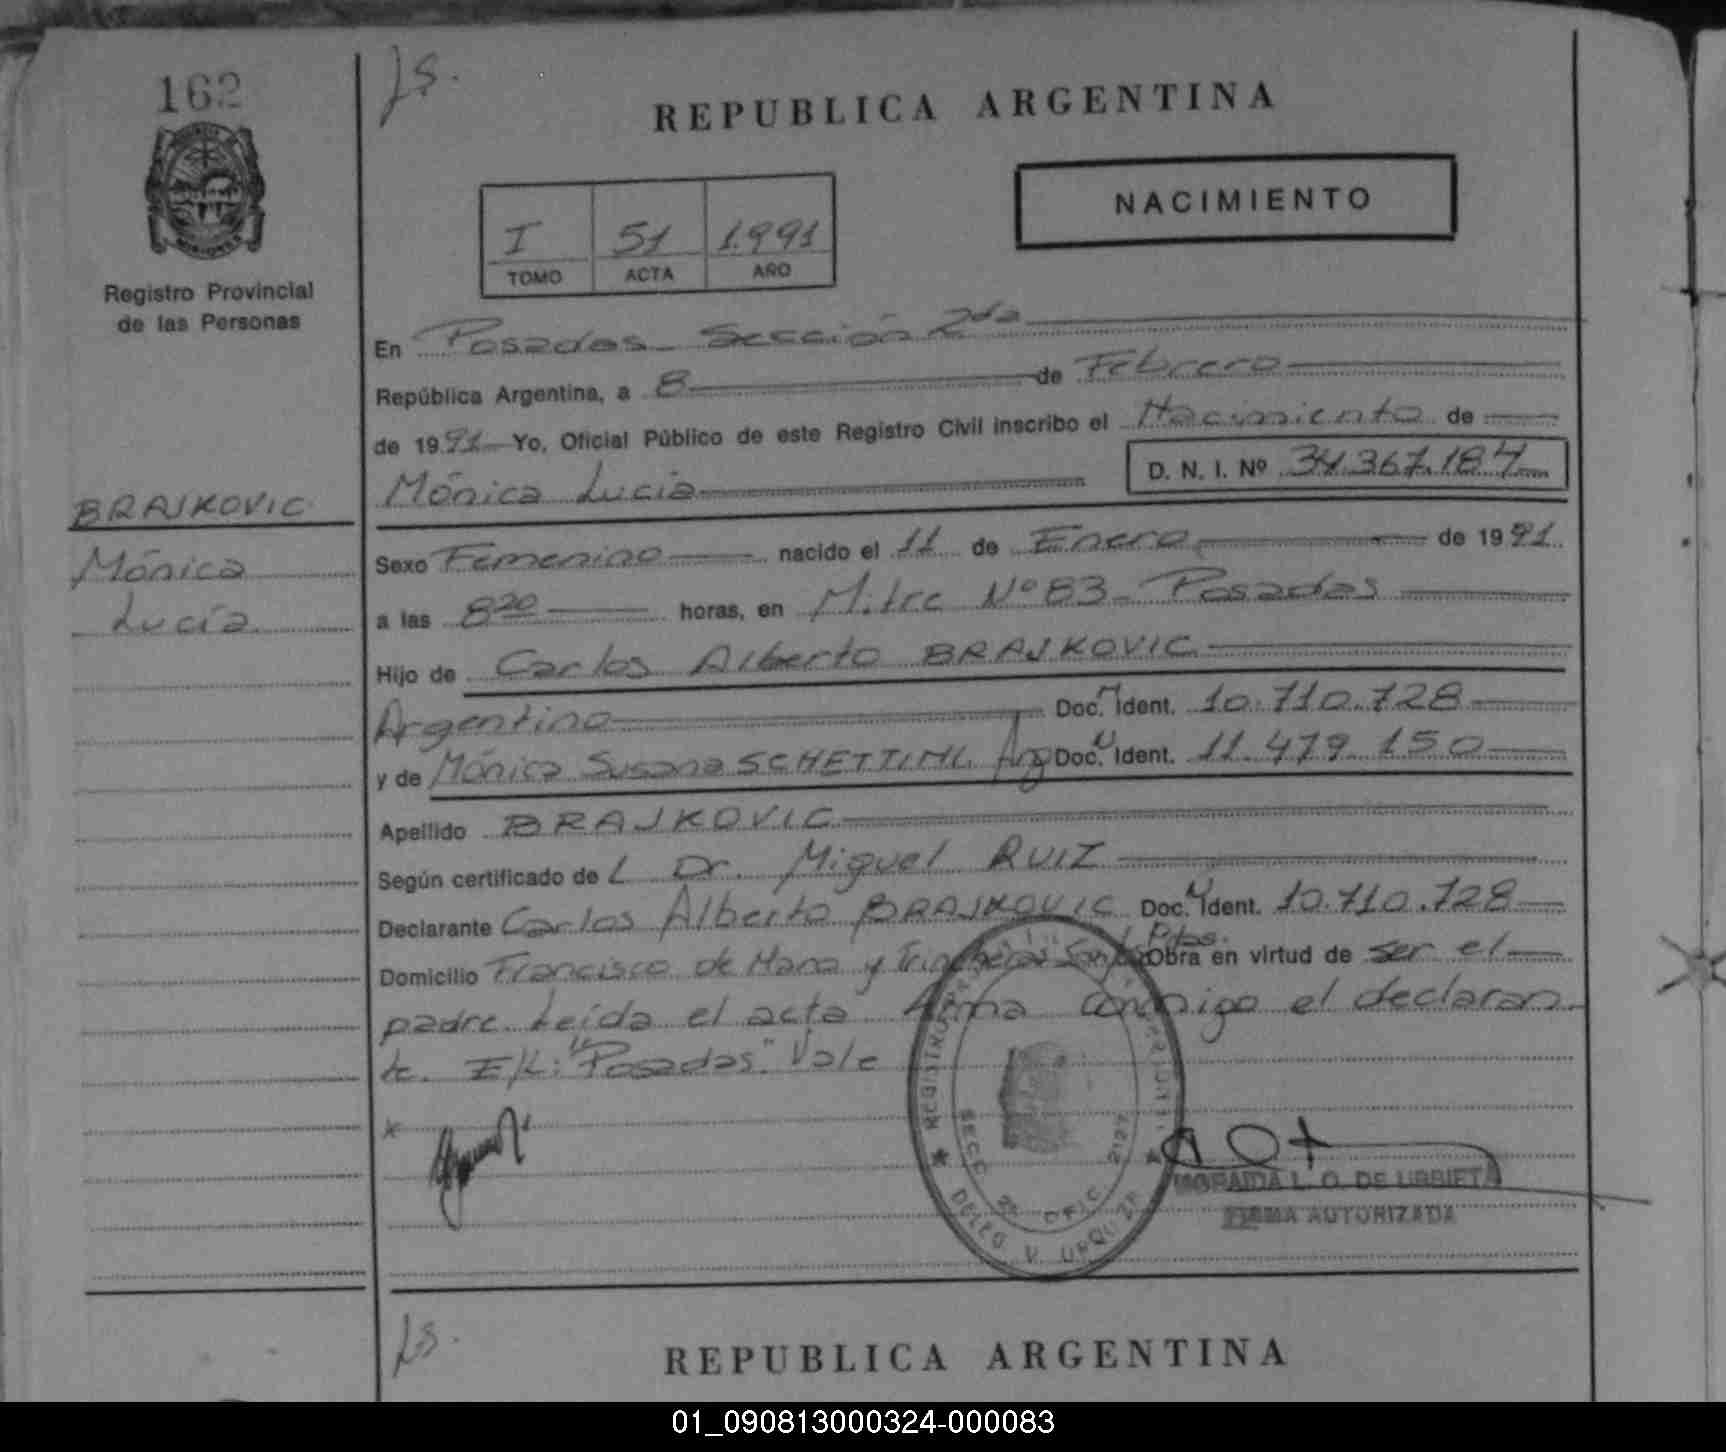 162
Registro Provincial
de las Personas
BRAJKOVIC
Mónica
Lucía
REPUBLICA ARGENTINA
NACIMIENTO
I 51 1.991
TOMO ACTA AÑO
En Posadas - Sección 2da
República Argentina, a 8 de Febrero
de 1991 Yo, Oficial Público de este Registro Civil inscribo el Nacimiento de
Mónica Lucía D. N. I. Nº 34.367.184
Sexo Femenino nacido el 11 de Enero de 1991
a las 8 20 horas, en Mitre Nº 83 - Posadas
Hijo de Carlos Alberto BRAJKOVIC
Argentino Doc. Ident. 10.710.728
y de Mónica Susana SCHETTINI. Arg Doc. Ident. 11.479.150
Apellido BRAJKOVIC
Según certificado de L Dr. Miguel RUIZ
Declarante Carlos Alberto BRAJKOVIC Doc. Ident. 10.710.728
Domicilio Francisco de Haro y Trincheras San José Pdas. Obra en virtud de ser el
padre. Leída el acta firma conmigo el declaran-
te. E/L: "Posadas". Vale
x
REGISTRO
SECC 2ª OFIC 2127
DELEG V. URQUIZA
L. O. DE URBIETA
FIRMA AUTORIZADA
REPUBLICA ARGENTINA
01_090813000324-000083